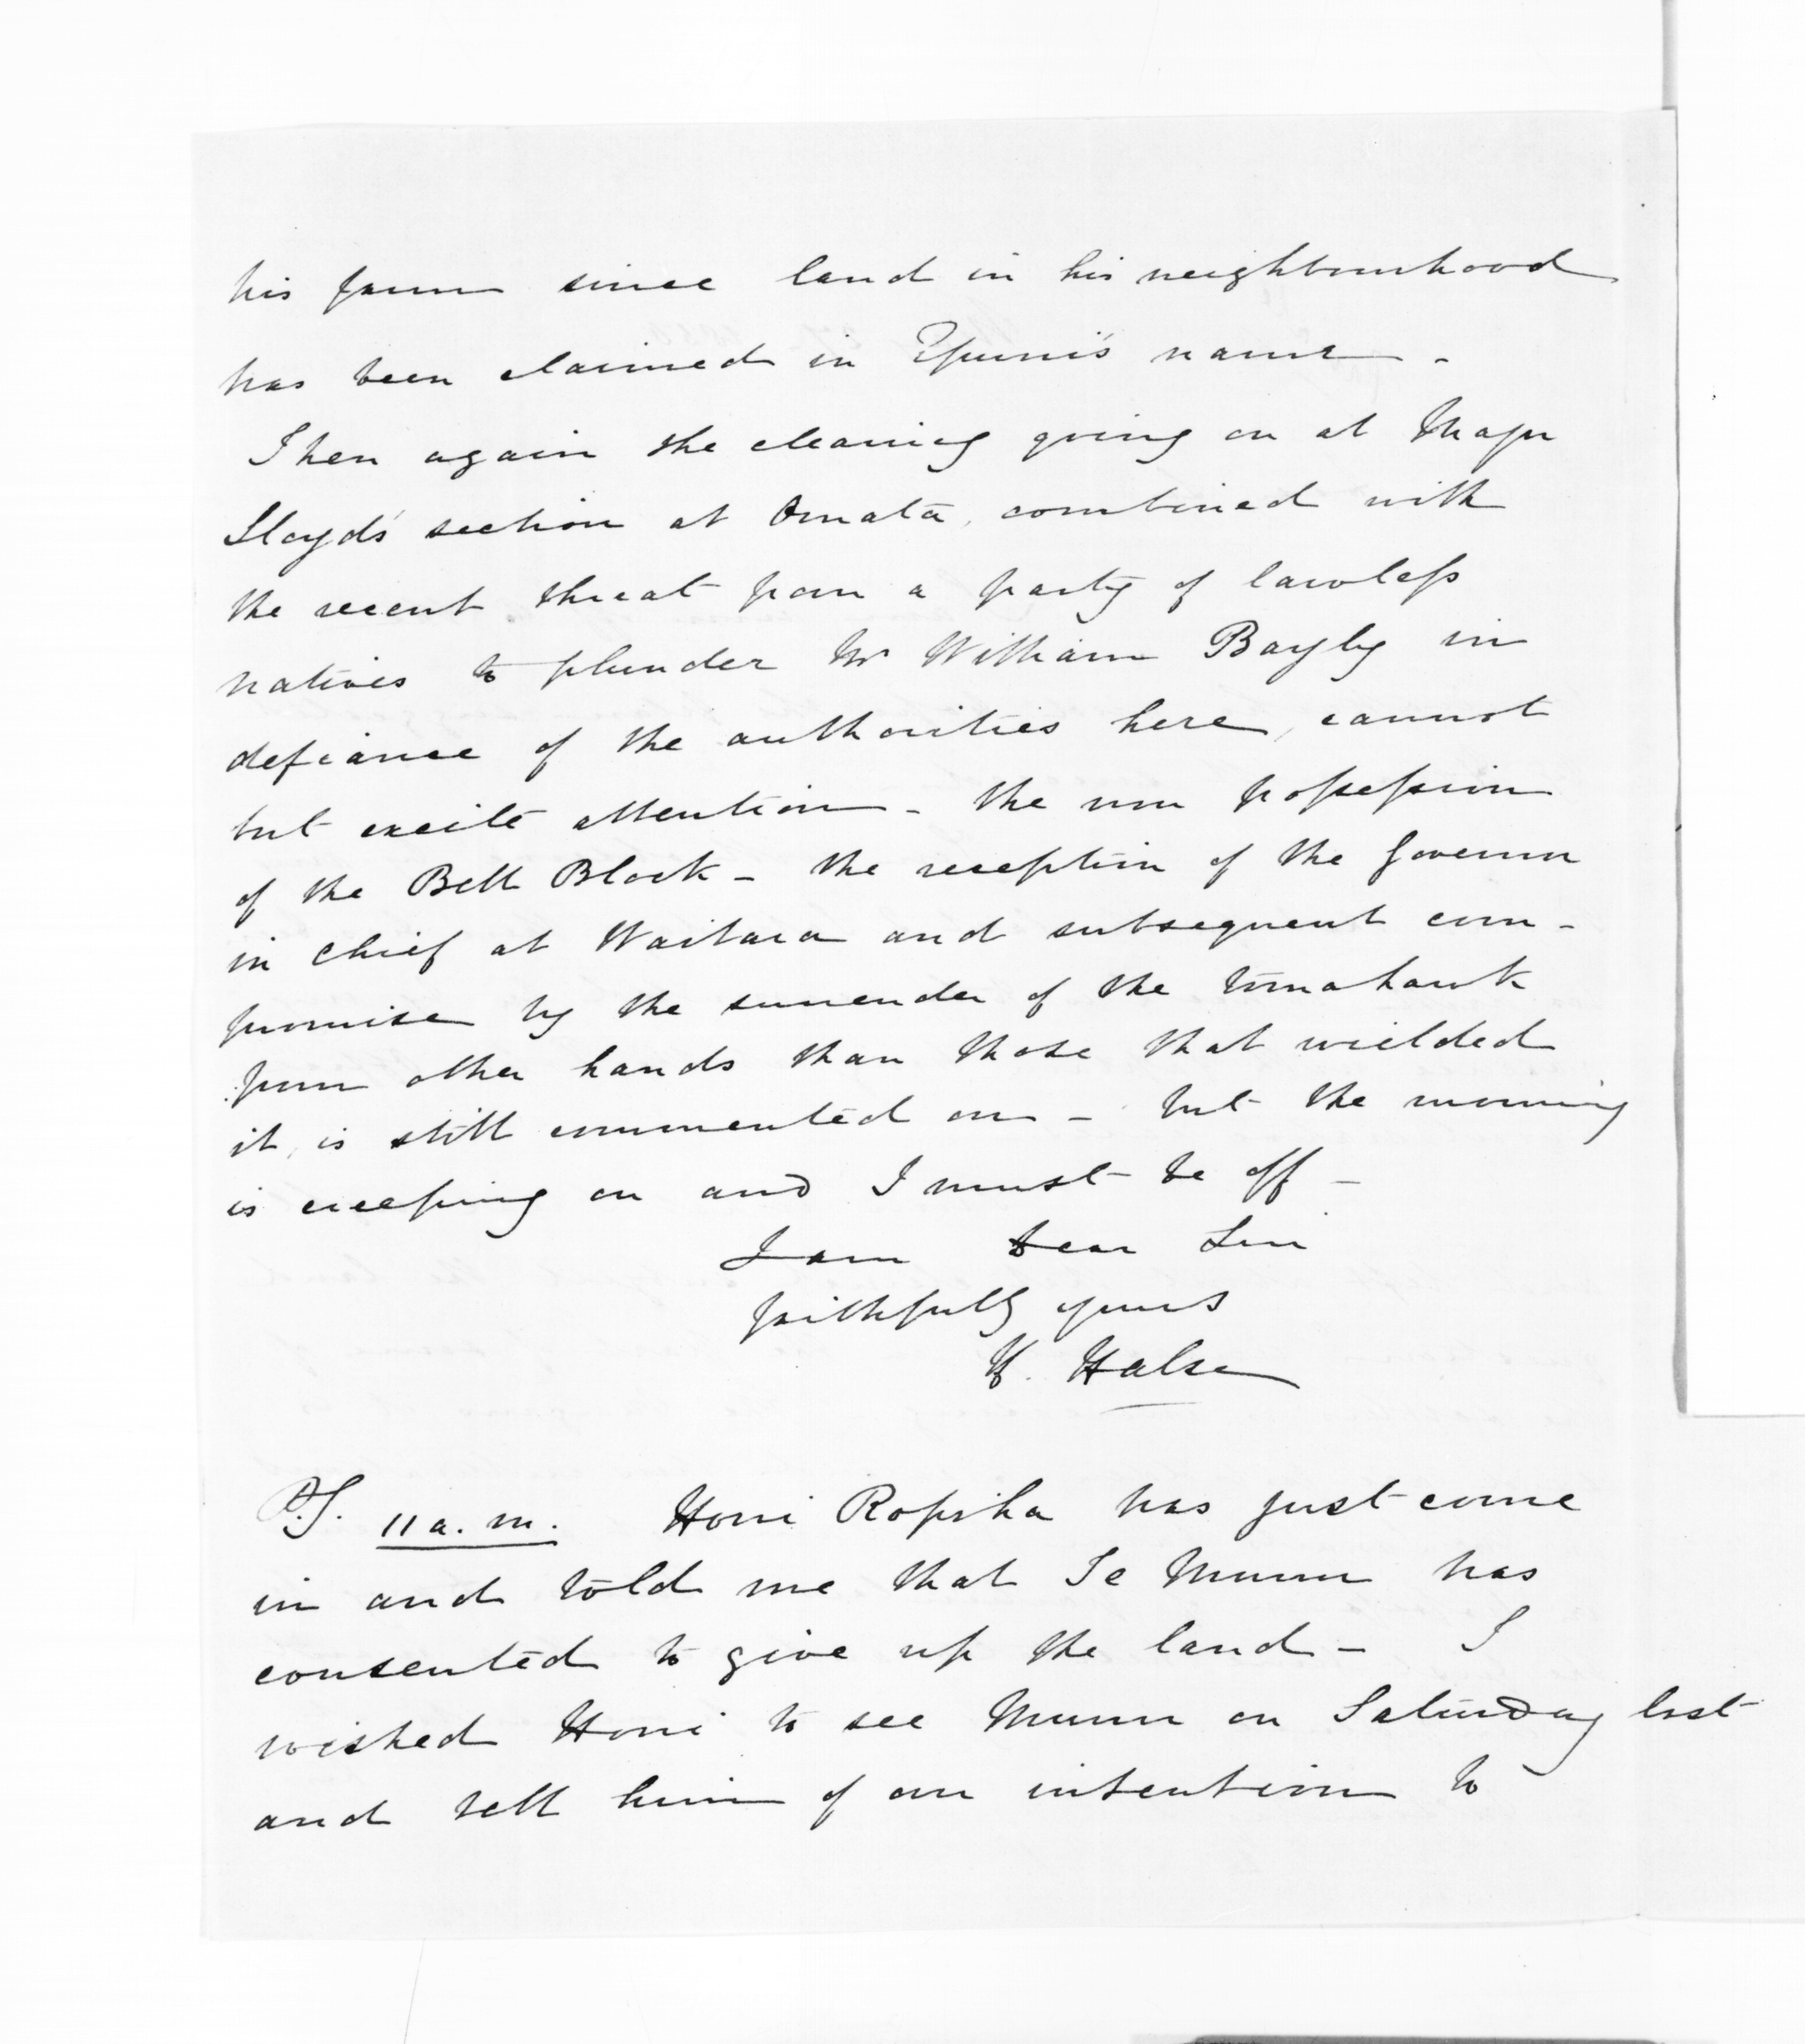 his farm since land in his neighbourhood
has been claimed in Epuni's name -
Then again the clearing going on at Major
Lloyd's section at Omata, combined with
the recent threat from a party of lawless
natives to plunder Mr William Bayly in
defiance of the authorities here, cannot
but excite attention - the non possession
of the Bell Block - the reception of the Governor
in Chief at Waitara and subsequent com-
promise by the surrender of the tomahawk
from other hands than those that wielded
it, is still commented on - but the morning
is creeping on and I must be off -
I am Dear Sir
faithfully yours
H. Halse
P.S. 11 a.m. Honi Ropiha has just come
in and told me that Te Munu has
consented to give up the land - I
wished Honi to see Munu on Saturday last
and tell him of our intention to